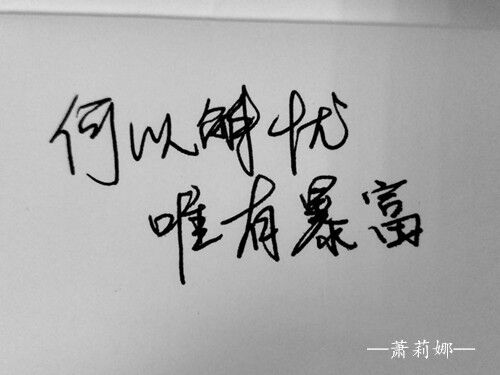 何以解忧
唯有暴富
—萧莉娜—